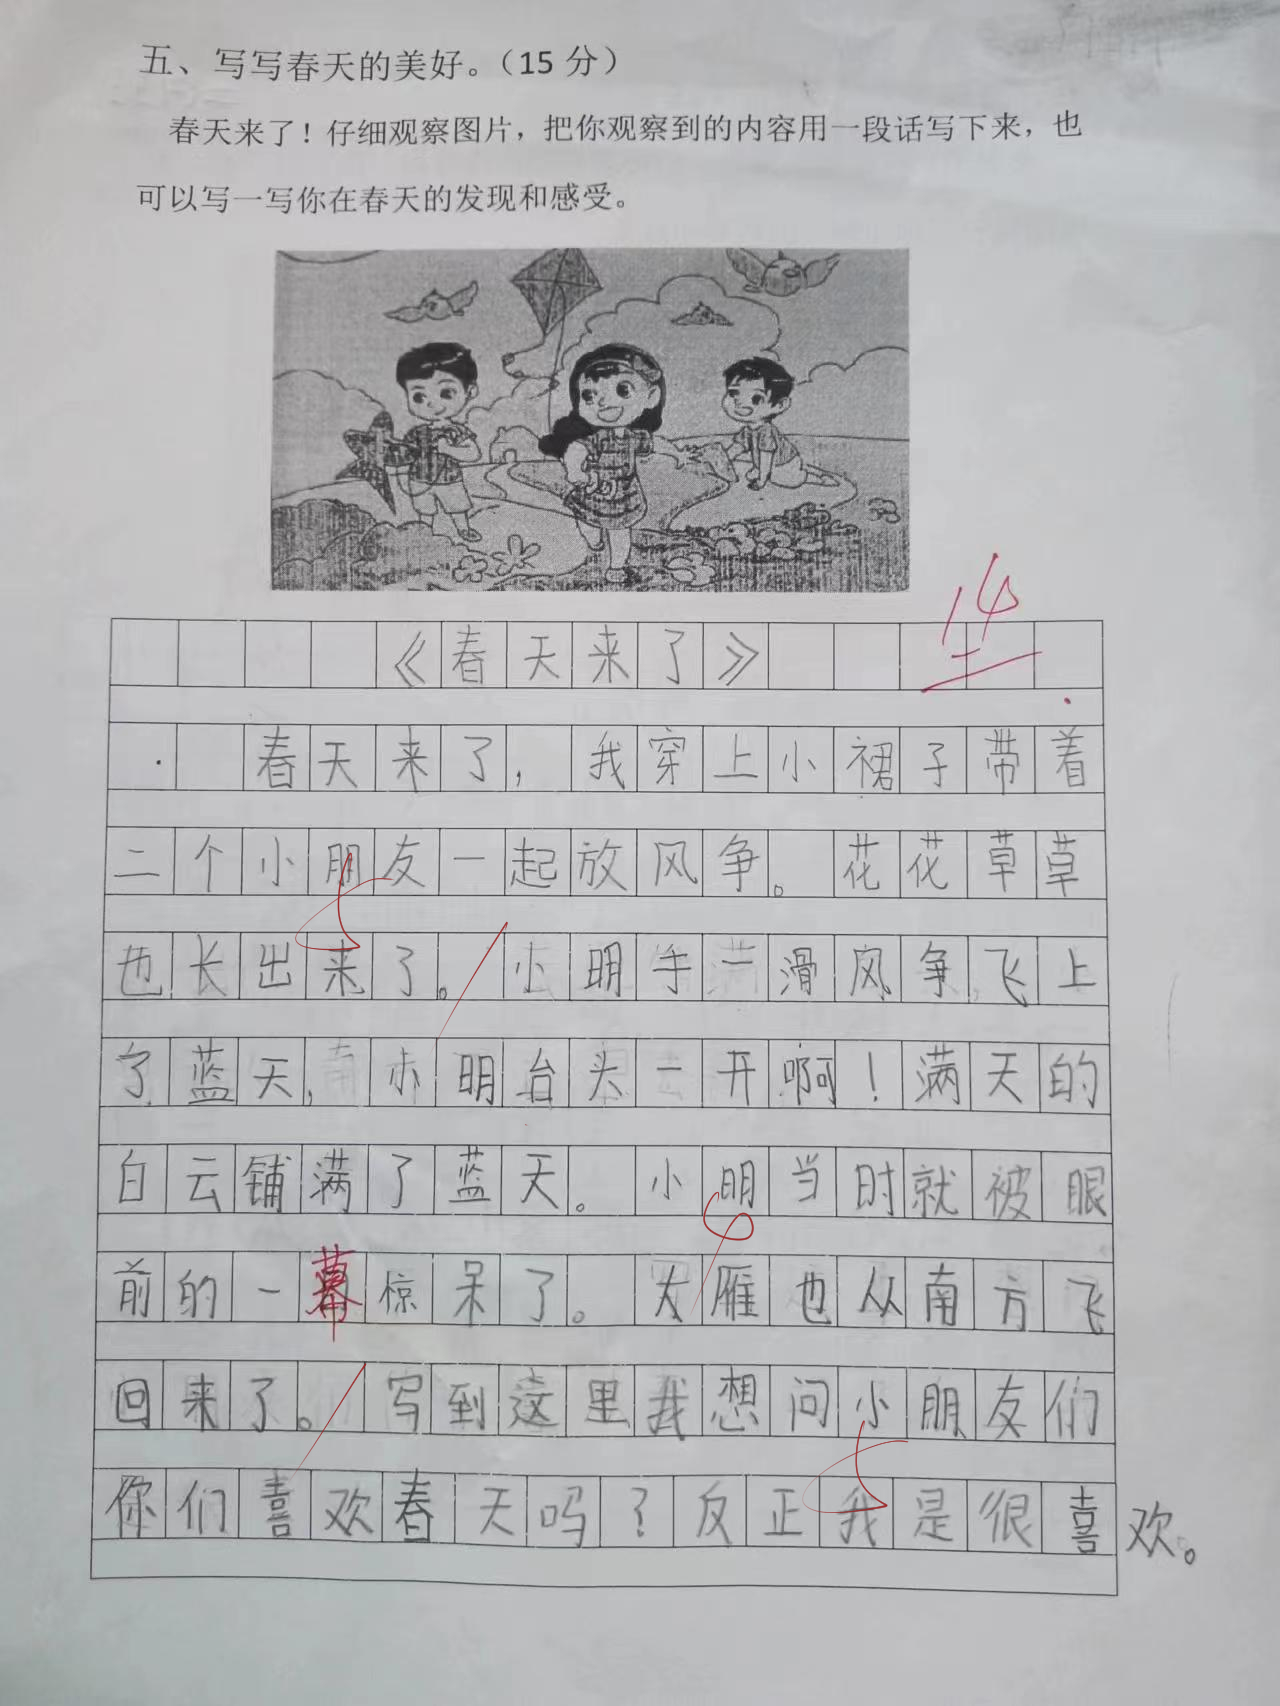 五、写写春天的美好。（15 分）
春天来了！仔细观察图片，把你观察到的内容用一段话写下来，也
可以写一写你在春天的发现和感受。
14
《春天来了》
春天来了，我穿上小裙子带着
二个小朋友一起放风争。花花草草
也长出来了。小明手一滑风争飞上
了蓝天，小明台头一开啊！满天的
白云铺满了蓝天。小明当时就被眼
前的一幕惊呆了。大雁也从南方飞
回来了。写到这里我想问小朋友们
你们喜欢春天吗？反正我是很喜欢。